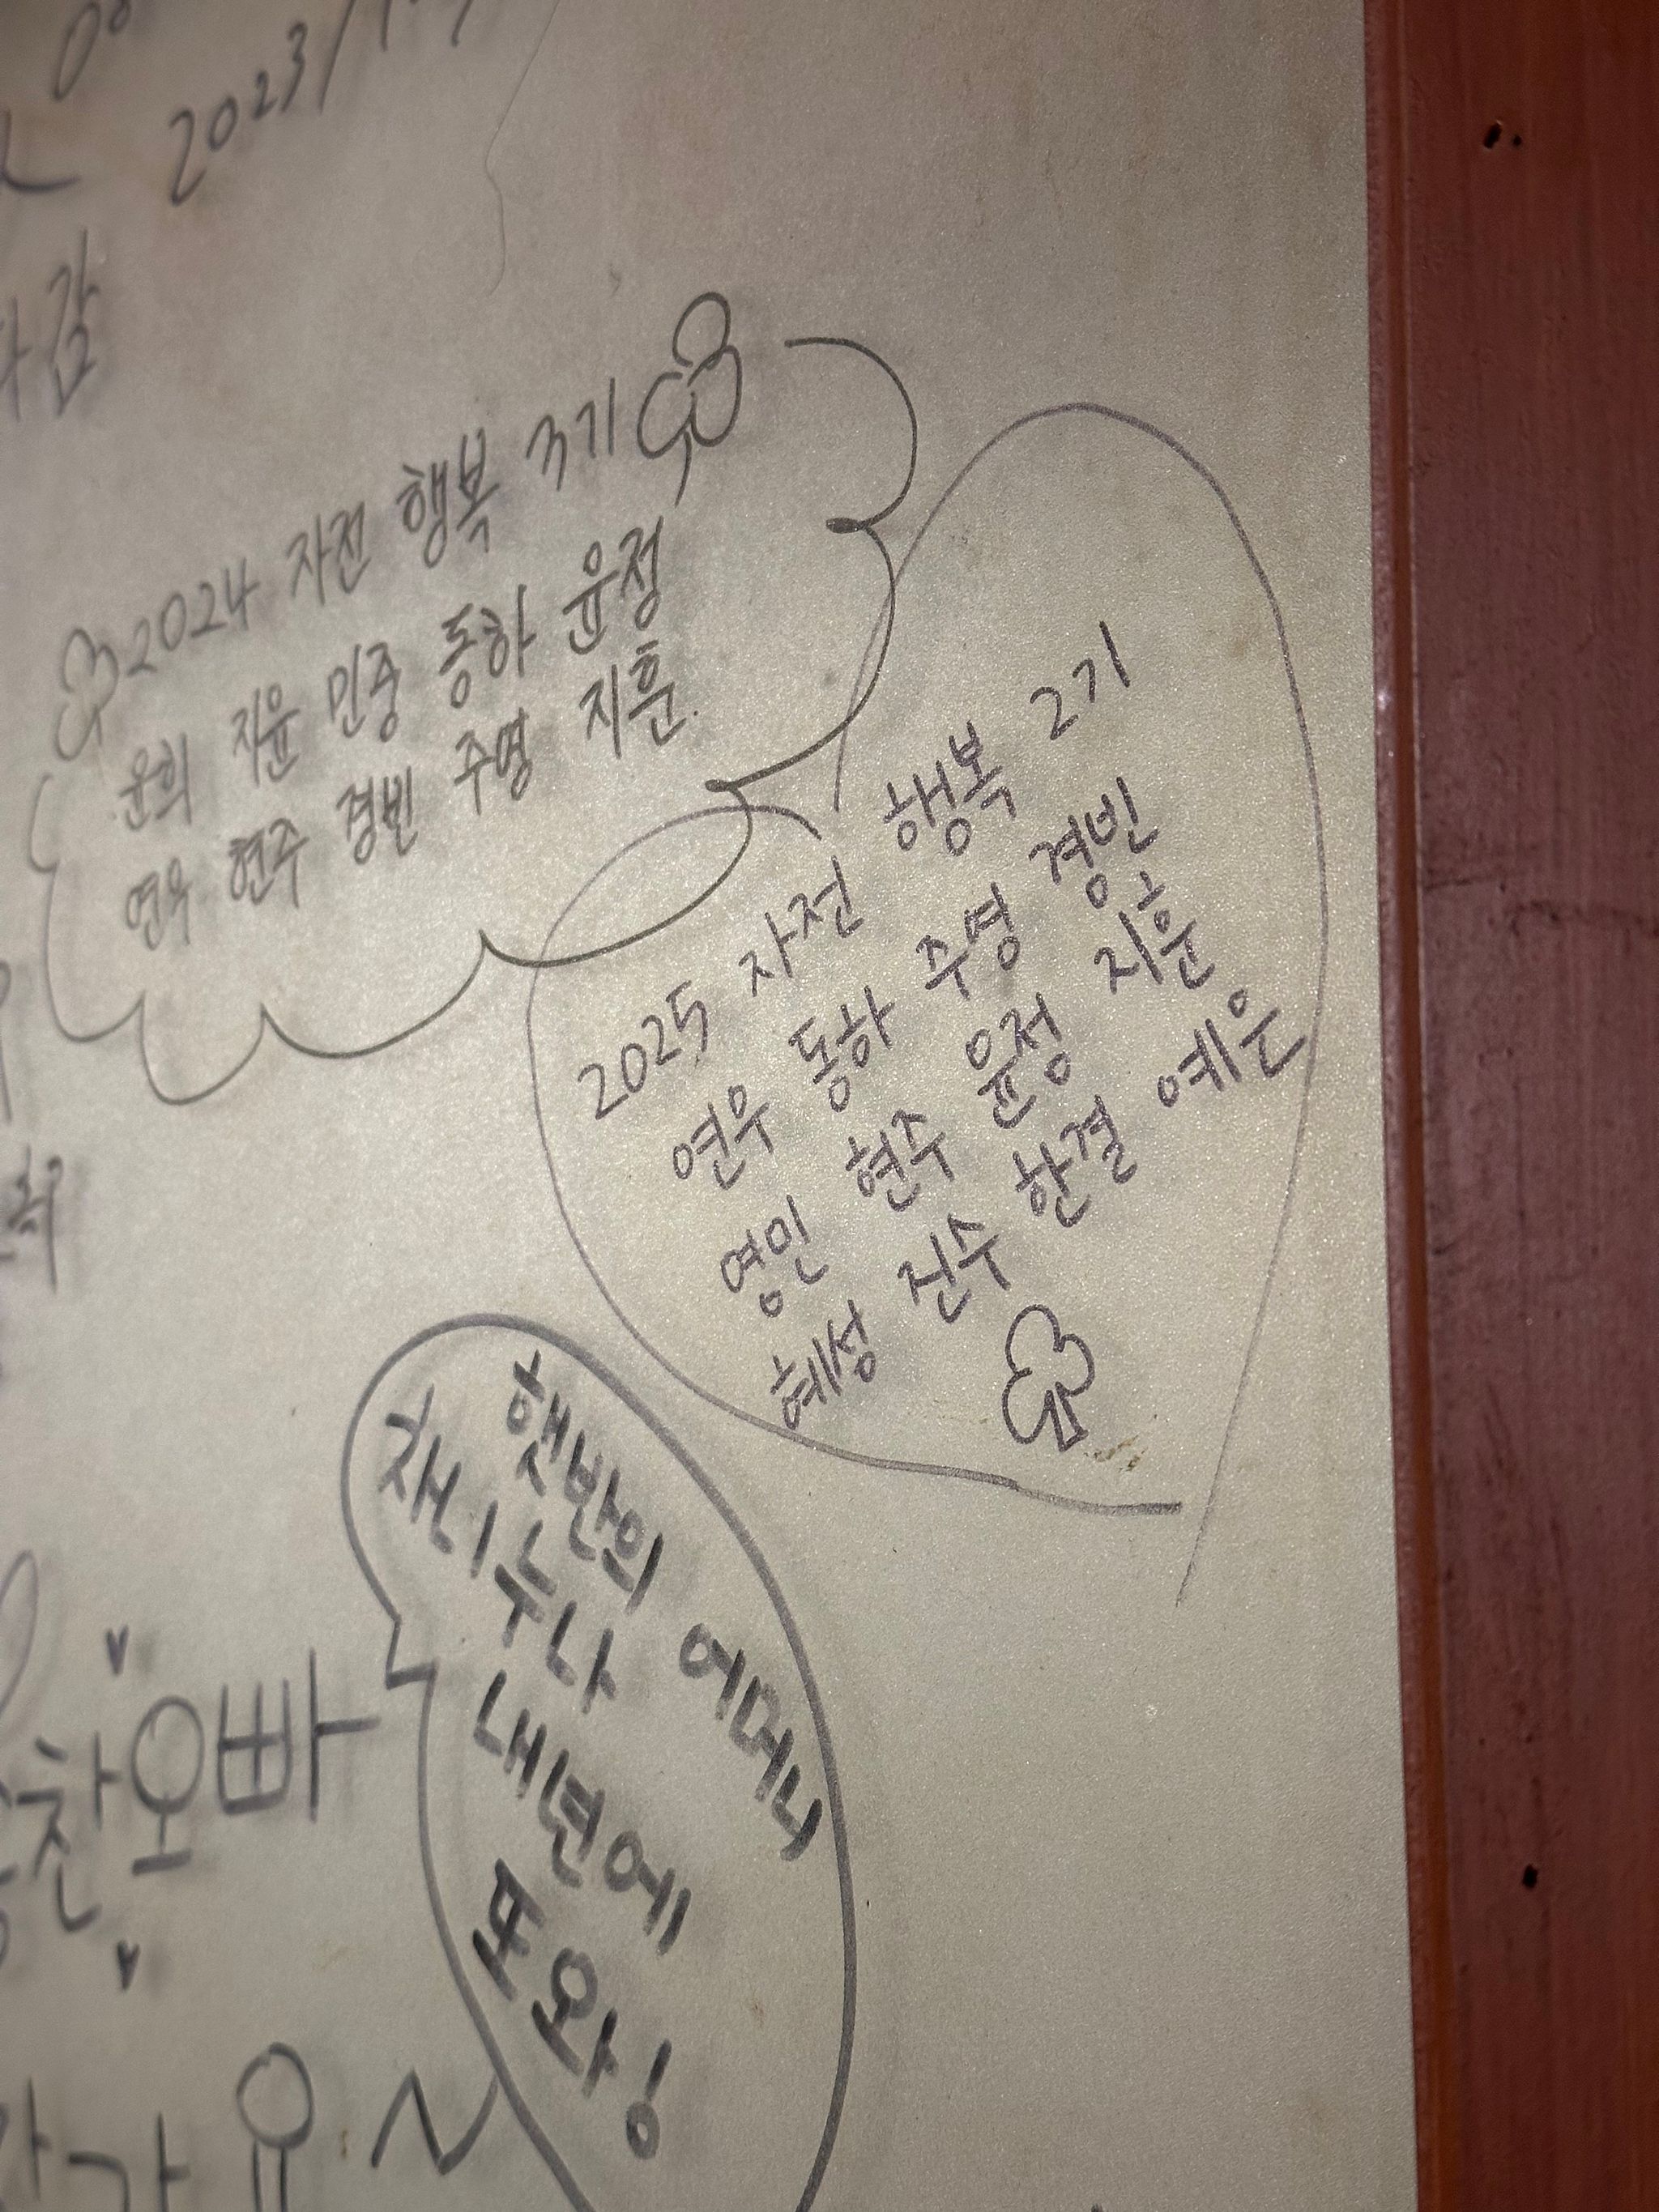 2023/
감
2024 자전 행복 3기
윤희 지윤 민중 동하 윤정
연우 현주 경빈 주영 지훈.
2025 자전 행복 2기
연우 동하 주영 경빈
영민 현주 윤정 지훈
혜성 진수 한결 예은
햇반의 어머니
채니누나
내년에
또와!
찬오빠
가요~